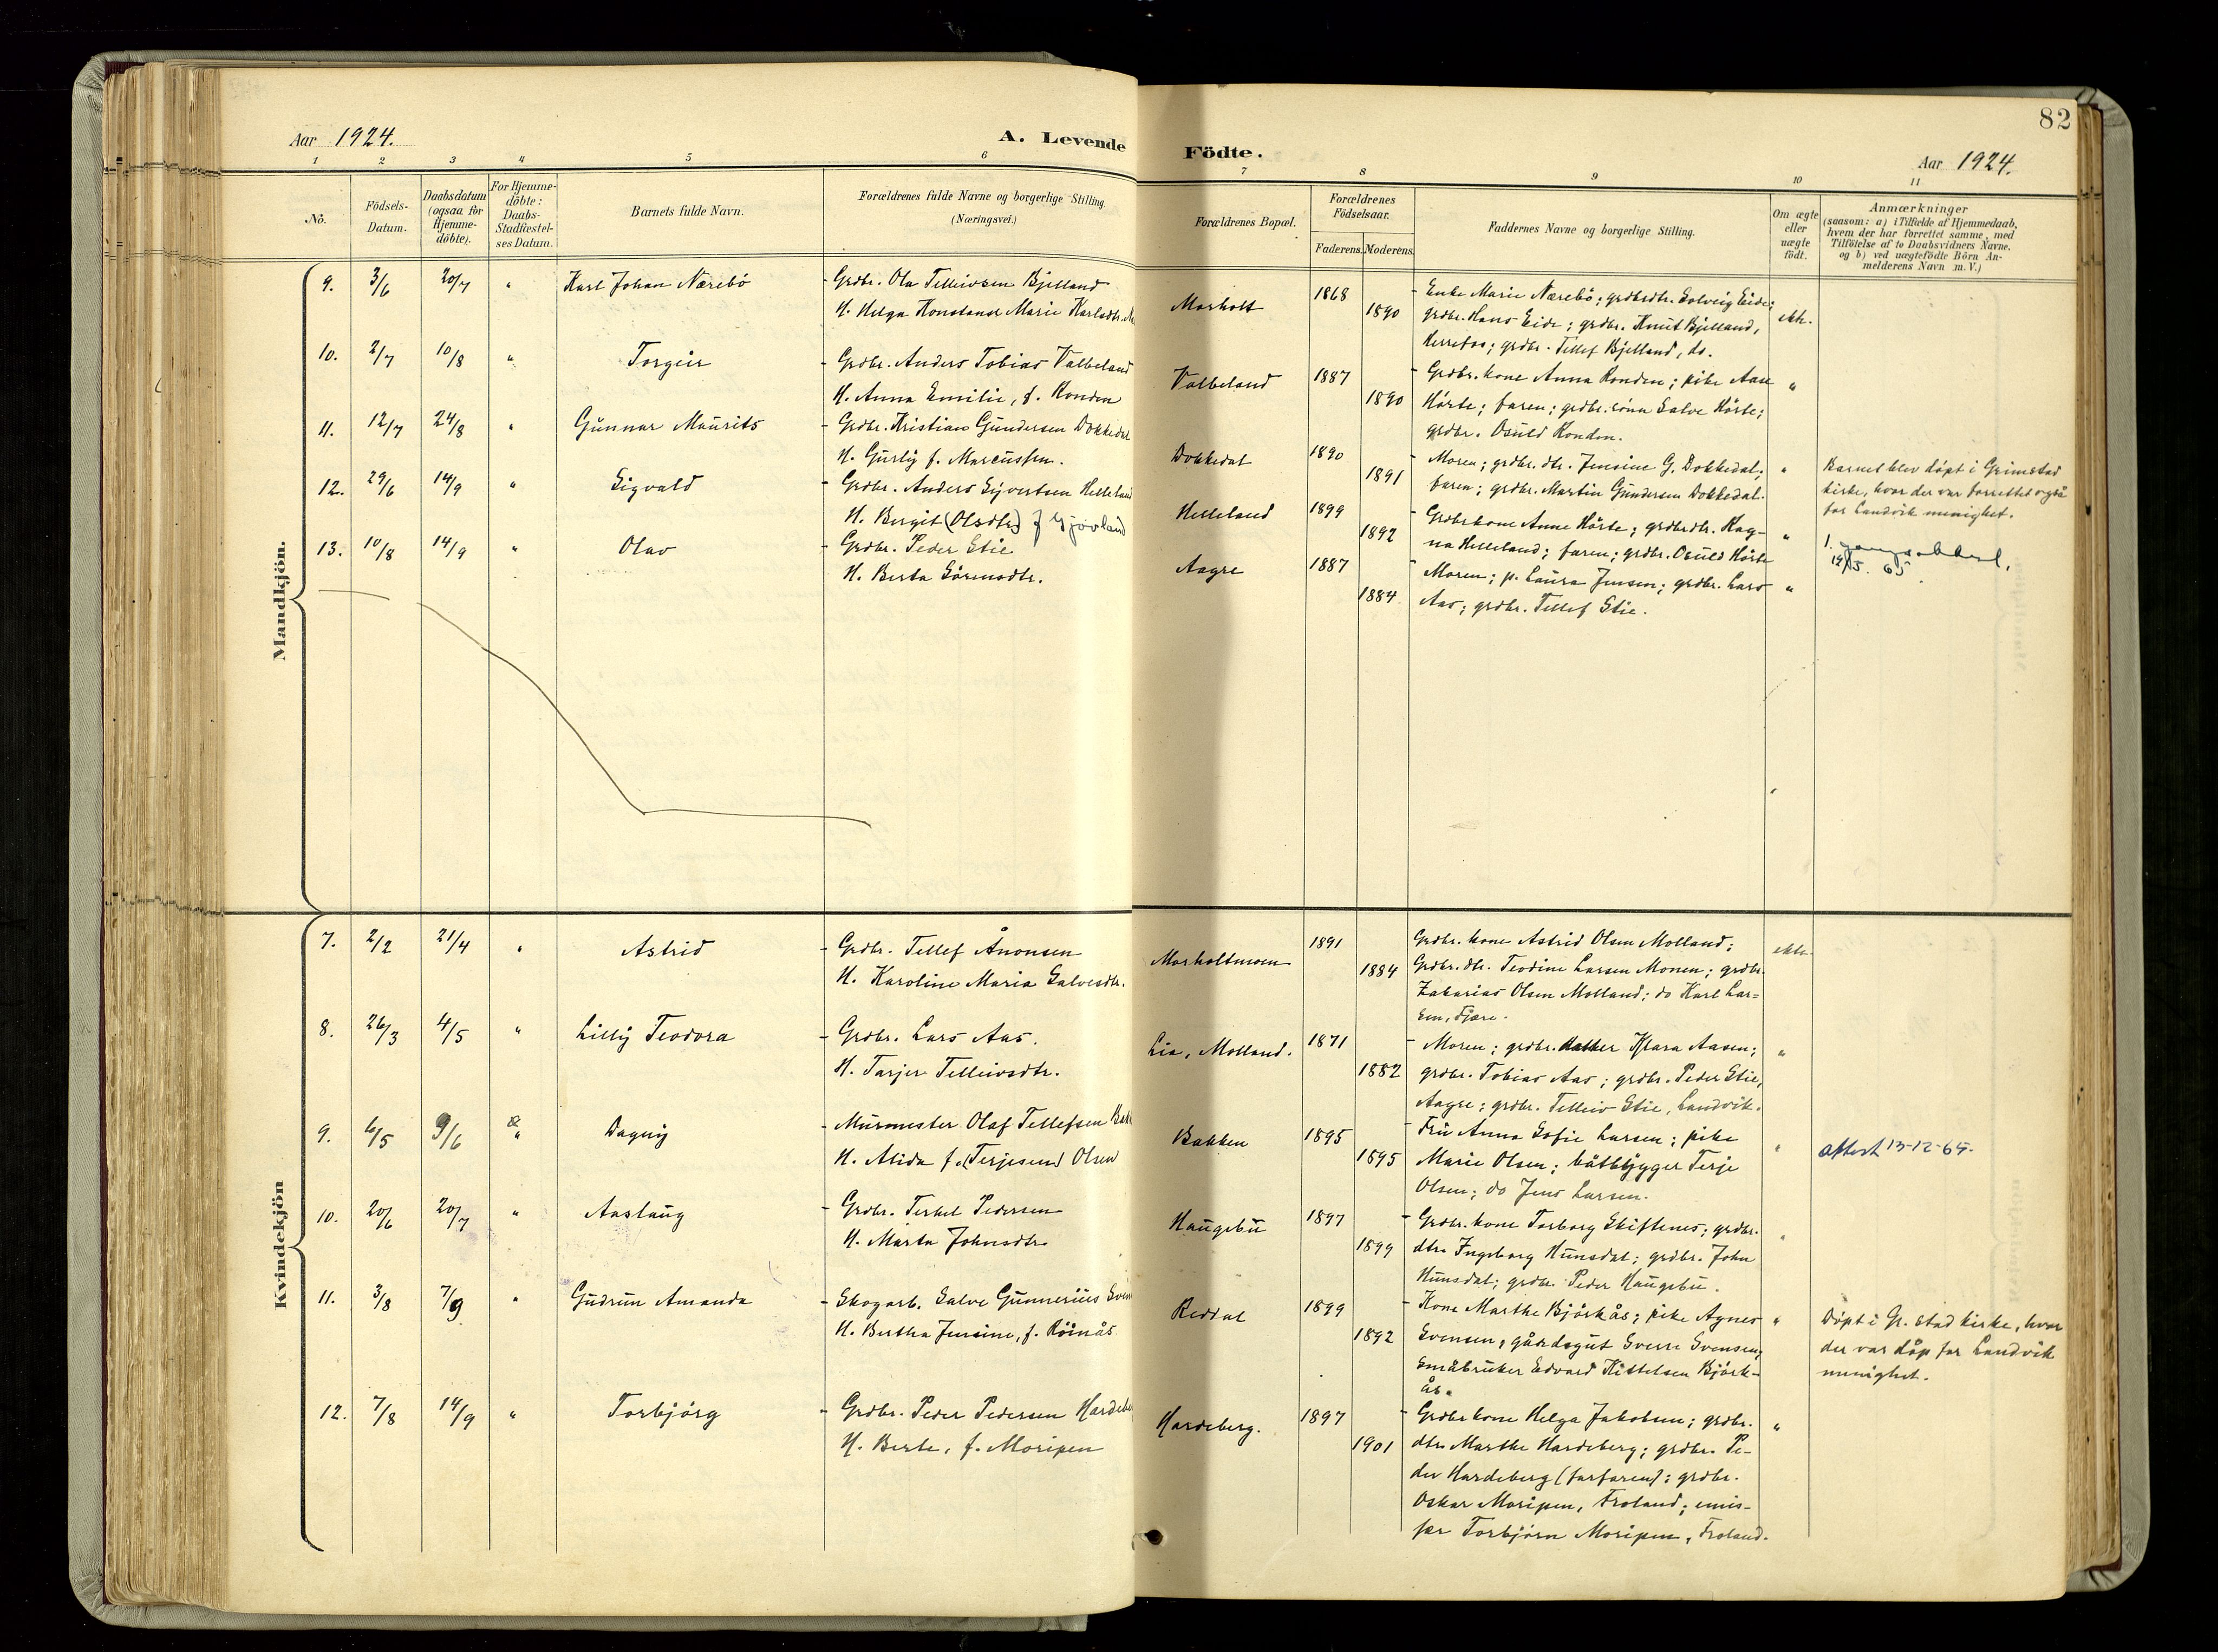 82
Aar 1924.
A. Levende Födte.
Aar 1924.
1 2 3 4 5 6 7 8 9 10 11
No.
Födsels-Datum.
Daabsdatum (ogsaa for Hjemme-döbte).
For Hjemme-döbte: Daabs-Stadfæstel-ses Datum.
Barnets fulde Navn.
Forældrenes fulde Navne og borgerlige Stilling. (Næringsvei.)
Forældrenes Bopæl.
Forældrenes Födselsaar.
Faderens. Moderens.
Faddernes Navne og borgerlige Stilling.
Om ægte eller uægte födt.
Anmærkninger
(saasom: a) i Tilfælde af Hjemmedaab,
hvem der har forrettet samme, med
Tilföielse af to Daabsvidners Navne,
og b) ved uægtefödte Börn An-
melderens Navn m. V.)
Mandkjön.
9. 3/6 20/7 " Karl Johan Nærebö
- Grdbr. Ola Telleivsen Bjelland
H. Helga Konstanse Marie Karlsdtr.
Morholt 1868 1890
- Enke Marie Nærebö; grdbrdtr. Solveig Eide;
grdbr. Hans Eide; grdbr. Knut Bjelland,
Herrefos; grdbr. Tellef Bjelland, do.
ekte.
10. 2/7 10/8 " Torgeir
- Grdbr. Anders Tobias Valbeland
H. Anna Emilie, f. Ronden
Valbeland 1887 1890
- Grdbr. kone Anna Ronden; pike Aase
Hörte; faren; grdbr. sönn Salve Hörte;
grdbr. Osuld Ronden.
"
11. 12/7 24/8 " Gunnar Maurits
- Grdbr. Kristian Gundersen Dokkedal
H. Gurly f. Marcussen.
Dokkedal 1890 1891
- Moren; grdbr. dtr. Jensine G. Dokkedal;
faren; grdbr. Martin Gundersen Dokkedal.
"
Barnet blev döpt i Grimstad
kirke, hvor der var forrettet også
for Landvik menighet.
12. 29/6 14/9 " Sigvald
- Grdbr. Anders Syvertsen Helleland
H. Bergit (Olsdtr) f Gjövland
Helleland 1899 1892
- Grdbrkone Anne Hörte; grdbrdtr. Rag-
na Helleland; faren; grdbr. Osuld Hörte
"
12/5. 65
13. 10/8 14/9 " Olav
- Grdbr. Peder Stie
H. Berta Sörensdtr.
Aagre 1887 1884
- Moren; p. Laura Jensen; grdbr. Lars
Aas; grdbr. Tellef Stie.
"
Kvindekjön
7. 2/2 21/4 " Astrid
- Grdbr. Tellef Ånonsen
H. Karoline Maria Salvesdtr.
Morholtmoen 1891 1884
Grdbr. kone Astrid Olsen Molland;
Grdbr. dtr. Teodine Larsen Monen; grdbr.
Zakarias Olsen Molland; do Karl Lar-
sen, Fjære.
ekte.
8. 26/3 4/5 " Lilly Teodora
- Grdbr. Lars Aas.
H. Tarjer Telleivsdtr.
Lia, Molland. 1871 1882
- Moren; grdbr. datter Klara Aasen;
grdbr. Tobias Aas; grdbr. Peder Stie,
Aagre; grdbr. Telleiv Stie, Landvik.
"
9. 6/5 9/6 " Dagny
- Murmester Olaf Tellefsen
H. Alida f. (Terjesen) Olsen
Bakken 1895 1895
Fru Anna Sofie Larsen; pike
Marie Olsen; båtbygger Terje
Olsen; do Jens Larsen.
"
attest 13-12-65.
10. 20/6 20/7 " Aaslaug
- Grdbr. Terkel Pedersen
H. Marta Johnsdtr.
Haugebu 1897 1899
- Grdbr. kone Torborg Skiftenes; grdbr.
dtr. Ingeborg Hunsdal; grdbr. John
Hunsdal; grdbr. Peder Haugebu.
"
11. 3/8 7/9 " Gudrun Amanda
- Skogarb. Salve Gunnerius
H. Bertha Jensine, f. Röinås
Reddal 1899 1892
- Kone Marthe Björkås; pike Agnes
Svensen; gårdsgut Sverre Svensen;
Småbruker Edvard Kittelsen Björk-
ås.
"
Döpt i Gr.stad kirke, hvor
der var dåp for Landvik
menighet.
12. 7/8 14/9 " Torbjörg
- Grdbr. Peder Pedersen
H. Berte, f. Moripen
Hardeberg. 1897 1901
- Grdbr kone Helga Jakobsen; grdbr.
dtr. Marthe Hardeberg; grdbr. Pe-
der Hardeberg (farfaren); grdbr.
Oskar Moripen, Froland; emis-
sær Torbjörn Moripen, Froland.
"